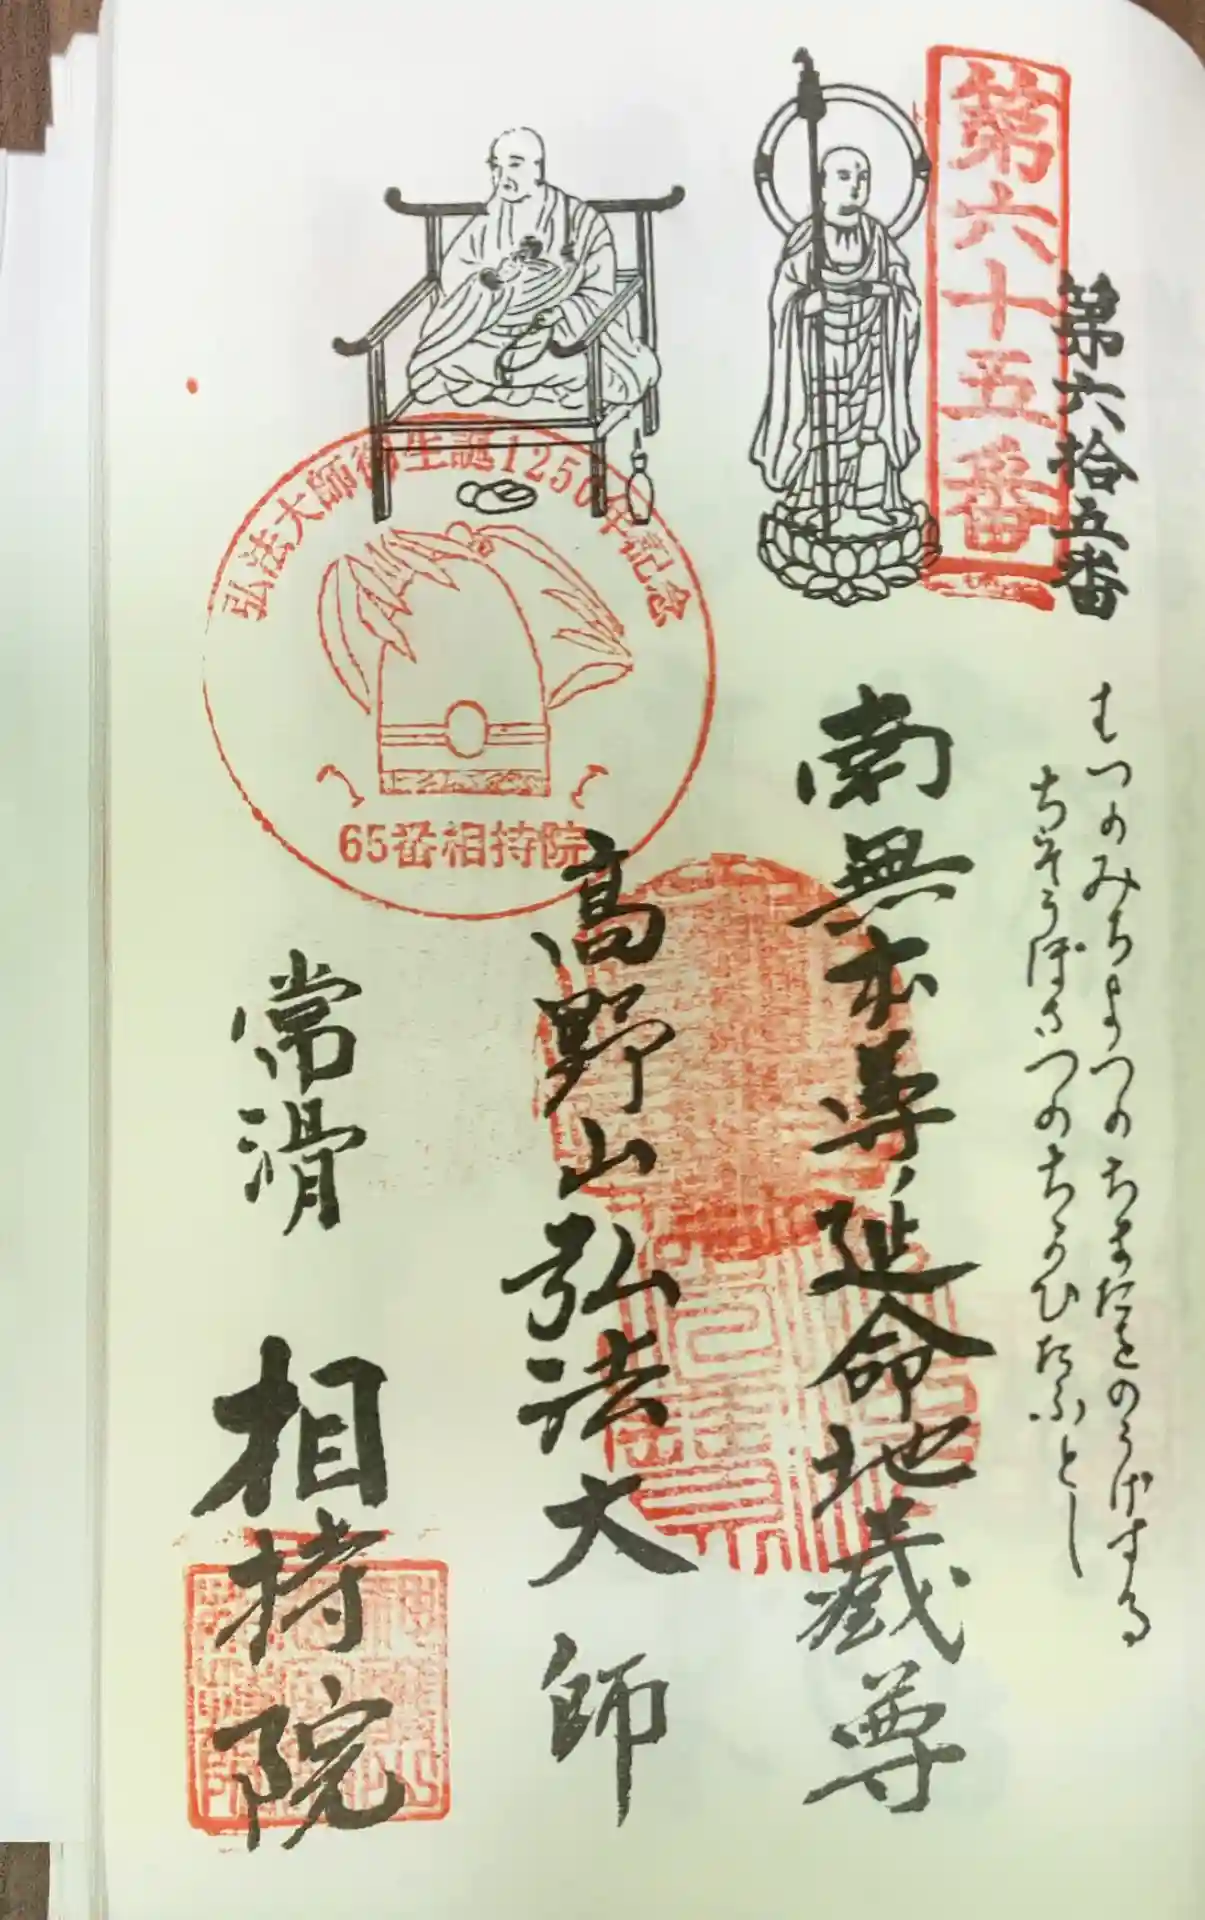 第六十五番
第六拾五番
むつのみちよつのちまたをのうけする
ちぞうぼさつのちかひたふとし
南無本尊延命地蔵尊
高野山弘法大師
常滑 相持院
弘法大師御生誕1250年記念
65番相持院